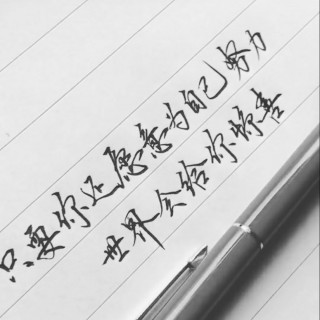 只要你还愿意为自己努力
世界会给你惊喜